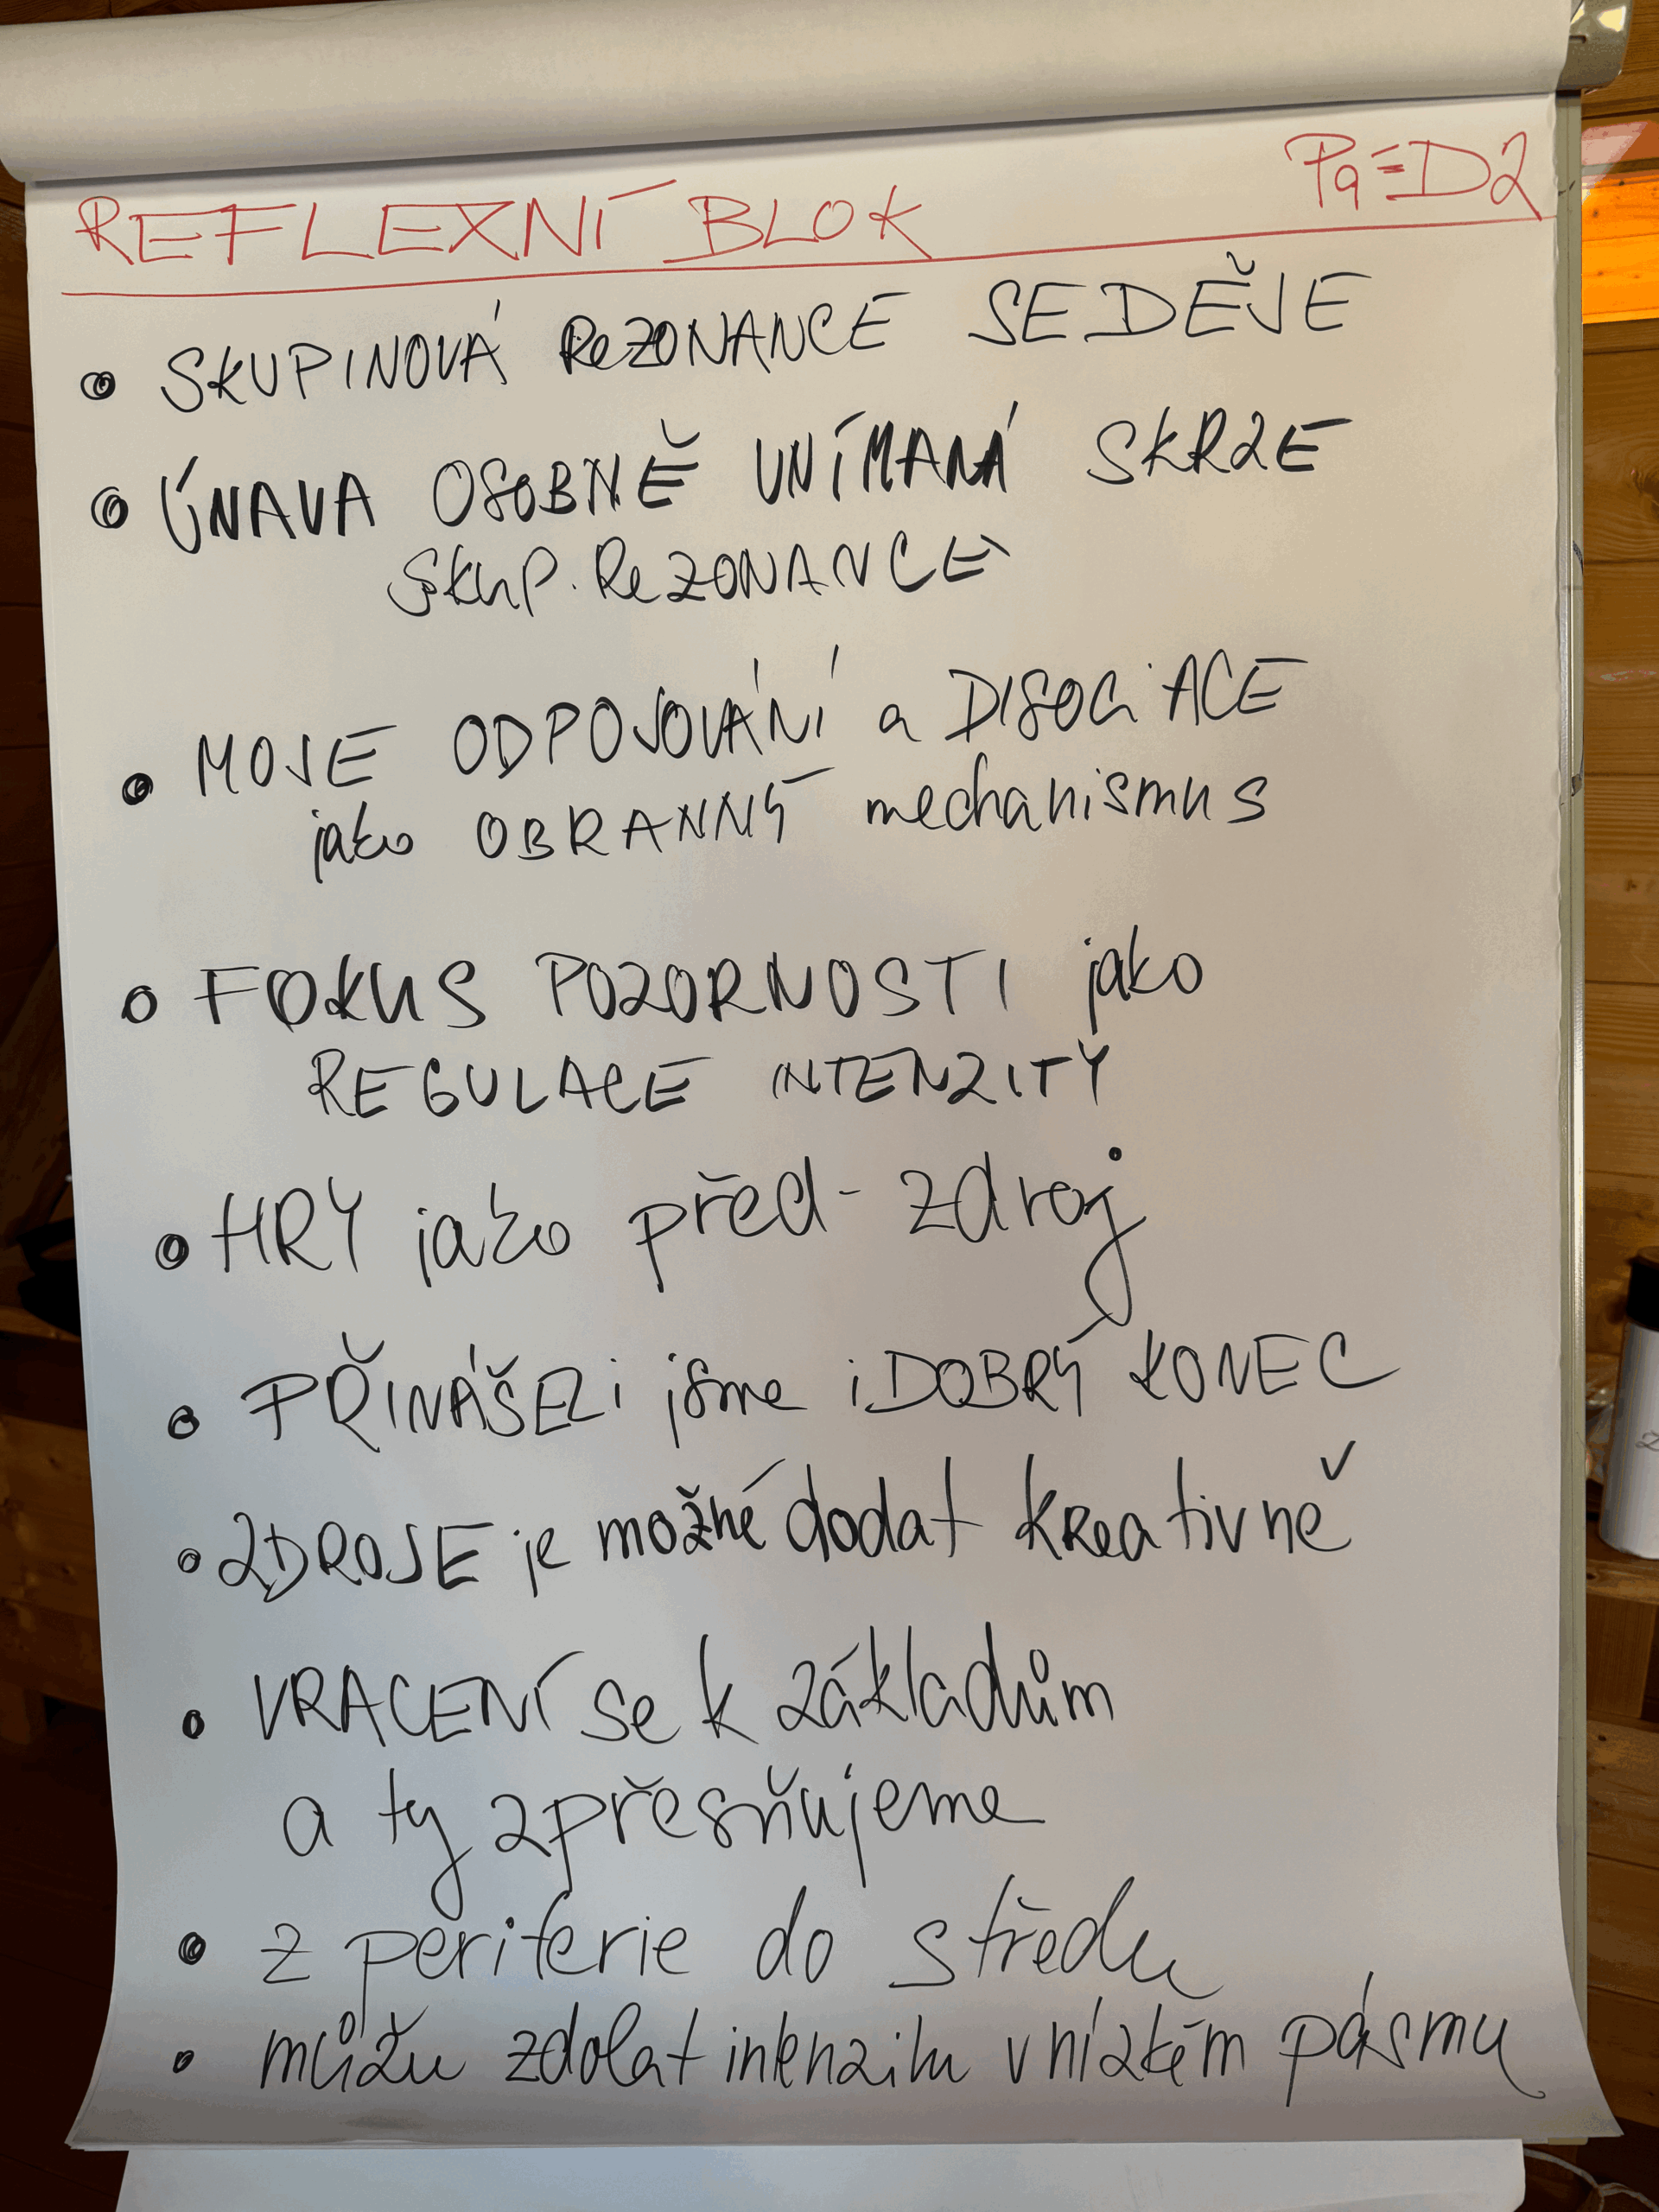 REFLEXNÍ BLOK Pá=D2
• SKUPINOVÁ ReZONANCE SE DĚJE
• ÚNAVA OSOBNĚ VNÍMANÁ SKRZE
SKUP. ReZONANCE
• MOJE ODPOJOVÁNÍ a DISOCIACE
jako OBRANNÝ mechanismus
• FOKUS POZORNOSTI jako
REGULACE INTENZITY
• HRY jako před-zdroj
• PŘINÁŠELi jsme i DOBRÝ KONEC
• ZDROJE je možné dodat kreativně
• VRACENÍ se k základům
a ty zpřesňujeme
• z periferie do středu
• můžu zdolat intenzitu v nízkém pásmu